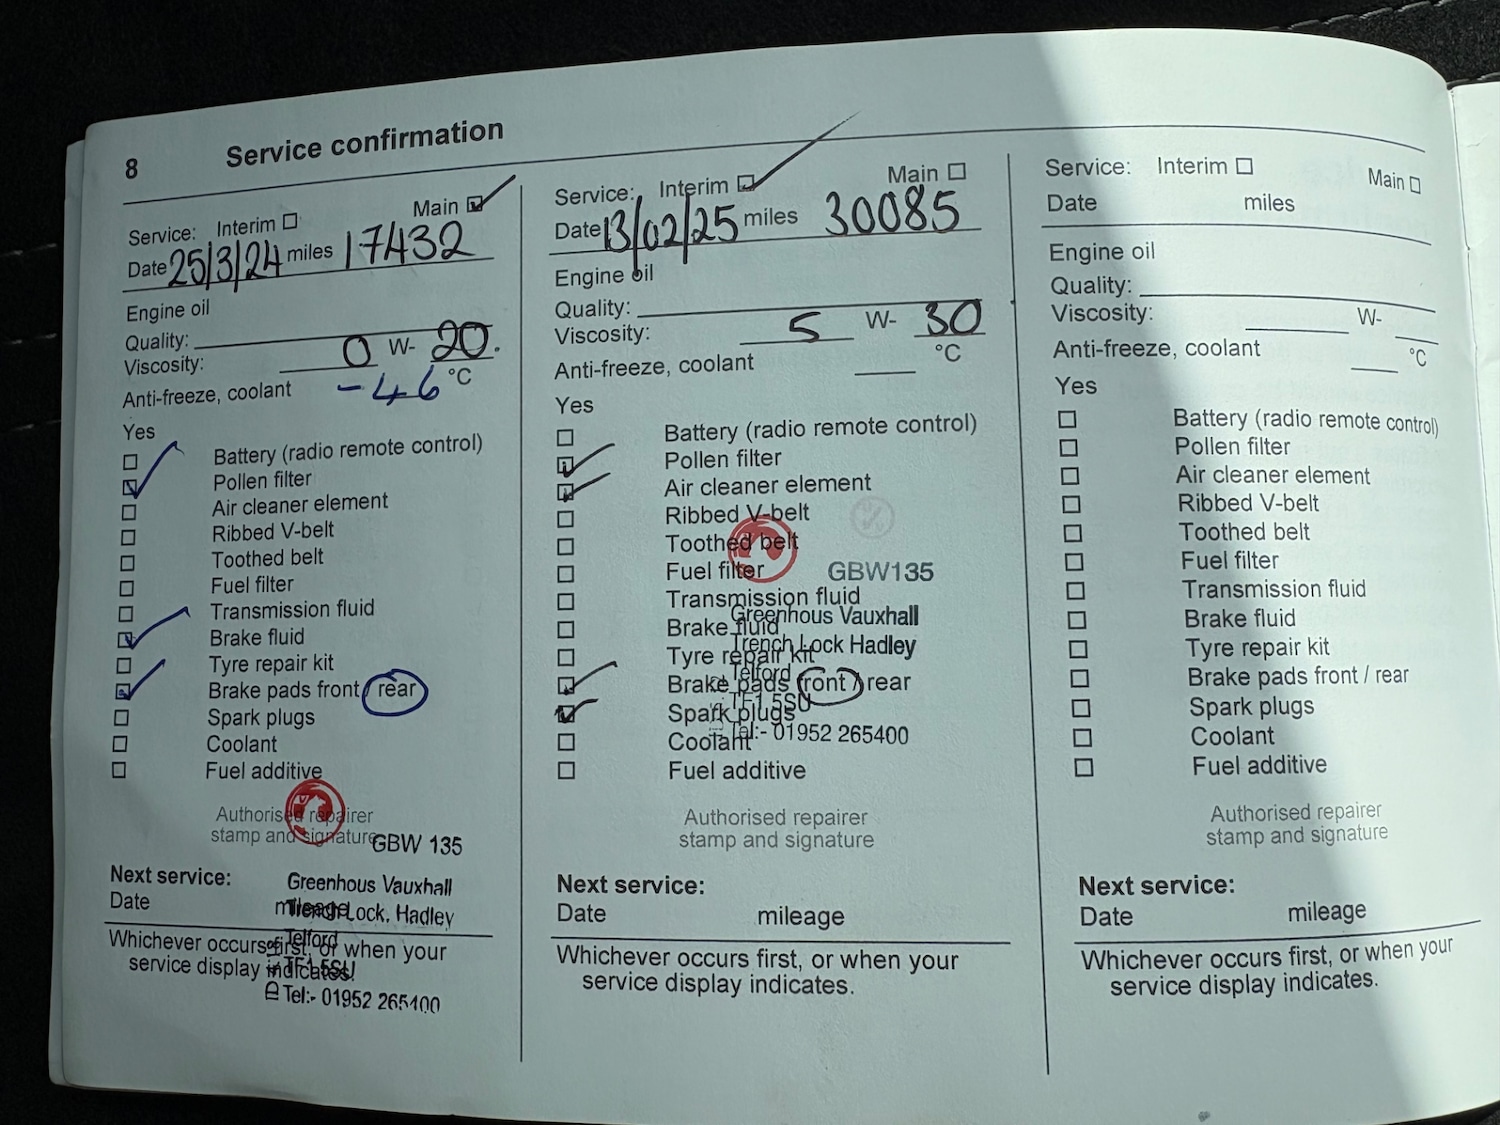 8 Service confirmation
Service: Interim Main
Date 25/3/24 miles 17432
Engine oil
Quality:
Viscosity: 0 W- 20.
Anti-freeze, coolant -46 °C
Yes
Battery (radio remote control)
Pollen filter
Air cleaner element
Ribbed V-belt
Toothed belt
Fuel filter
Transmission fluid
Brake fluid
Tyre repair kit
Brake pads front / rear
Spark plugs
Coolant
Fuel additive
Authorised repairer
stamp and signature
GBW 135
Greenhous Vauxhall
Trench Lock, Hadley
Telford
TF1 5SU
Tel:- 01952 265400
Next service:
Date mileage
Whichever occurs first, or when your
service display indicates.
Service: Interim Main
Date 13/02/25 miles 30085
Engine oil
Quality:
Viscosity: 5 W- 30
Anti-freeze, coolant °C
Yes
Battery (radio remote control)
Pollen filter
Air cleaner element
Ribbed V-belt
Toothed belt
Fuel filter
Transmission fluid
Brake fluid
Tyre repair kit
Brake pads front / rear
Spark plugs
Coolant
Fuel additive
GBW135
Greenhous Vauxhall
Trench Lock Hadley
Telford
TF1 5SU
Tel:- 01952 265400
Authorised repairer
stamp and signature
Next service:
Date mileage
Whichever occurs first, or when your
service display indicates.
Service: Interim Main
Date miles
Engine oil
Quality:
Viscosity: W-
Anti-freeze, coolant °C
Yes
Battery (radio remote control)
Pollen filter
Air cleaner element
Ribbed V-belt
Toothed belt
Fuel filter
Transmission fluid
Brake fluid
Tyre repair kit
Brake pads front / rear
Spark plugs
Coolant
Fuel additive
Authorised repairer
stamp and signature
Next service:
Date mileage
Whichever occurs first, or when your
service display indicates.